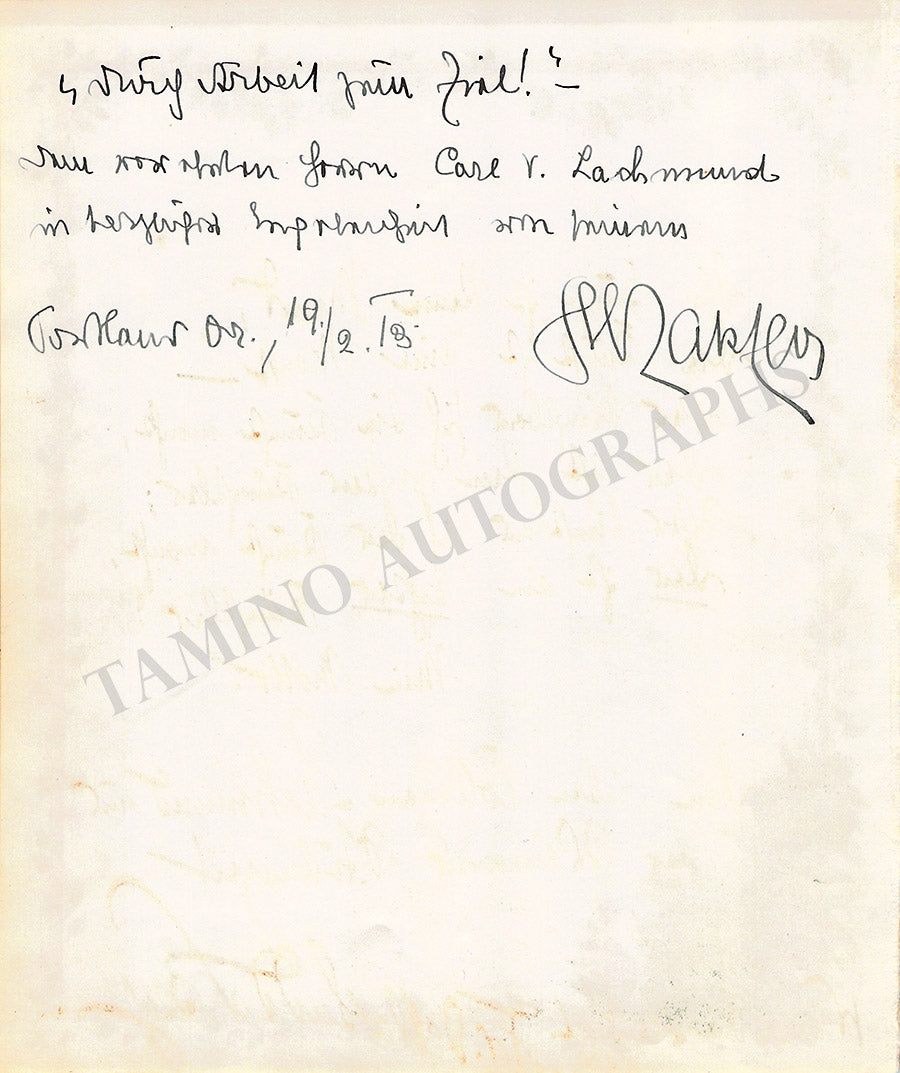 „Durch Arbeit zum Ziel!“ –
Dem verehrten Herrn Carl V. Lachmund
in herzlicher Ergebenheit von seinem
Portland Or., 19./2. 13
TAMINO AUTOGRAPHS